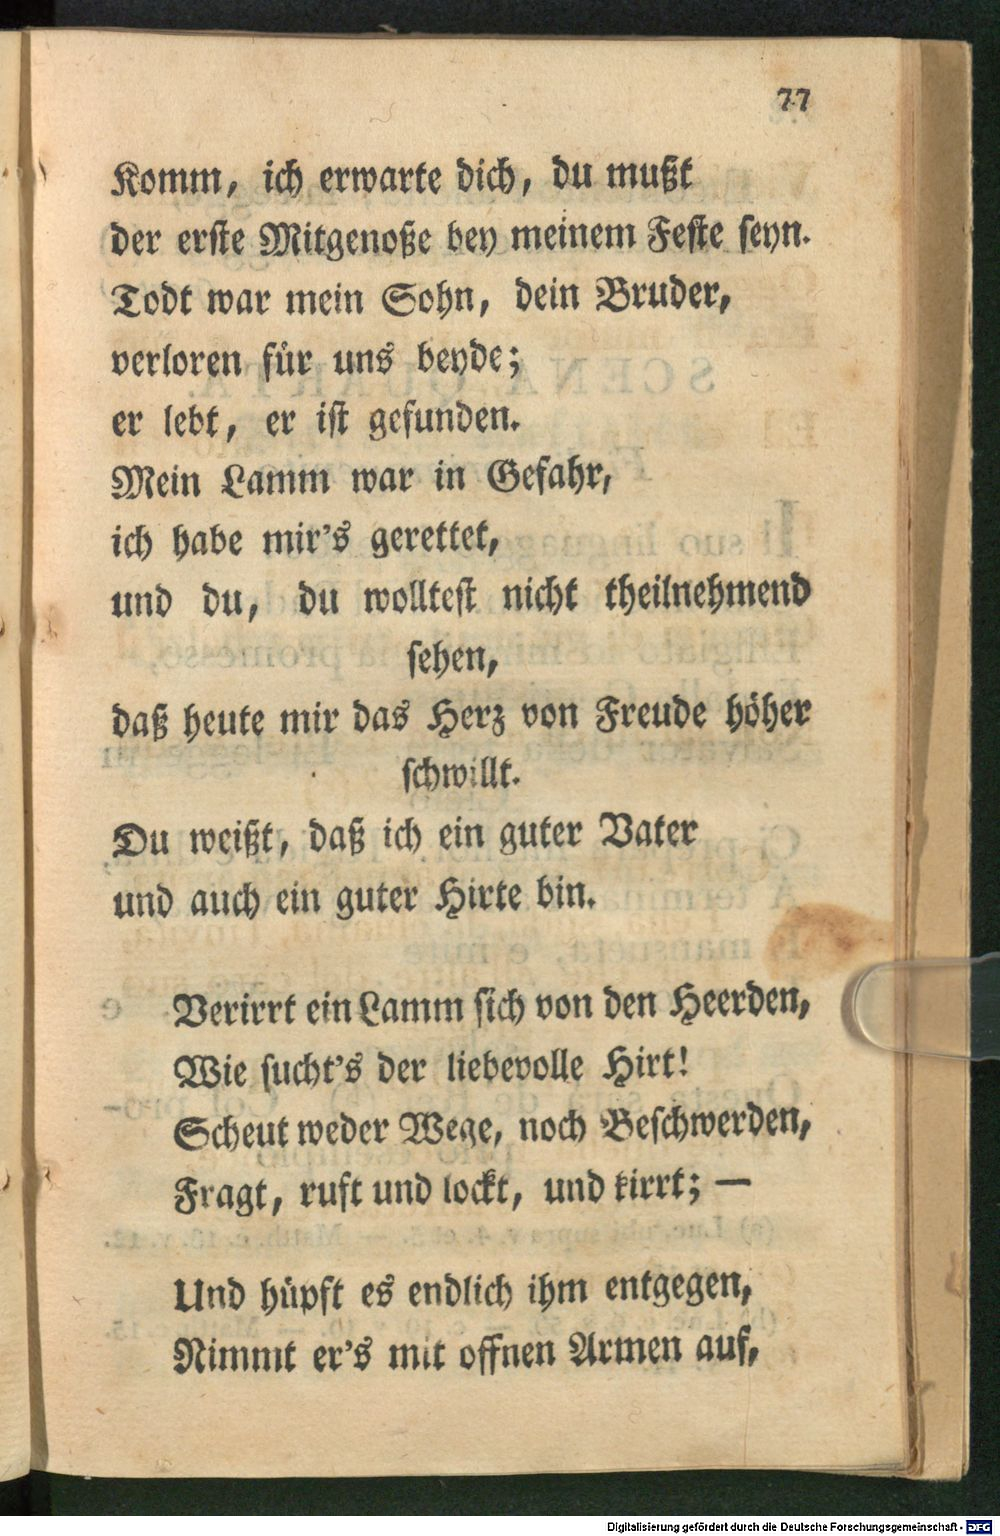 77
Komm, ich erwarte dich, du mußt
der erste Mitgenoße bey meinem Feste seyn.
Todt war mein Sohn, dein Bruder,
verloren für uns beyde;
er lebt, er ist gefunden.
Mein Lamm war in Gefahr,
ich habe mir's gerettet,
und du, du wolltest nicht theilnehmend
sehen,
daß heute mir das Herz von Freude höher
schwillt.
Du weißt, daß ich ein guter Vater
und auch ein guter Hirte bin.
Verirrt ein Lamm sich von den Heerden,
Wie sucht's der liebevolle Hirt!
Scheut weder Wege, noch Beschwerden,
Fragt, ruft und lockt, und kirrt; —
Und hüpft es endlich ihm entgegen,
Nimmt er's mit offnen Armen auf,
Digitalisierung gefördert durch die Deutsche Forschungsgemeinschaft - DFG